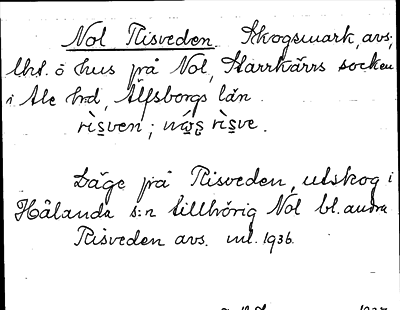 Nol Risveden. Skogsmark, avs;
lht. o hus på Nol, Starrkärrs socken
i Ale hd, Älfsborgs län.
rìsven; risve.
Läge på Risveden, utskog i
Hålanda s:n tillhörig Nol bl. andra
Risveden avs. 1936.